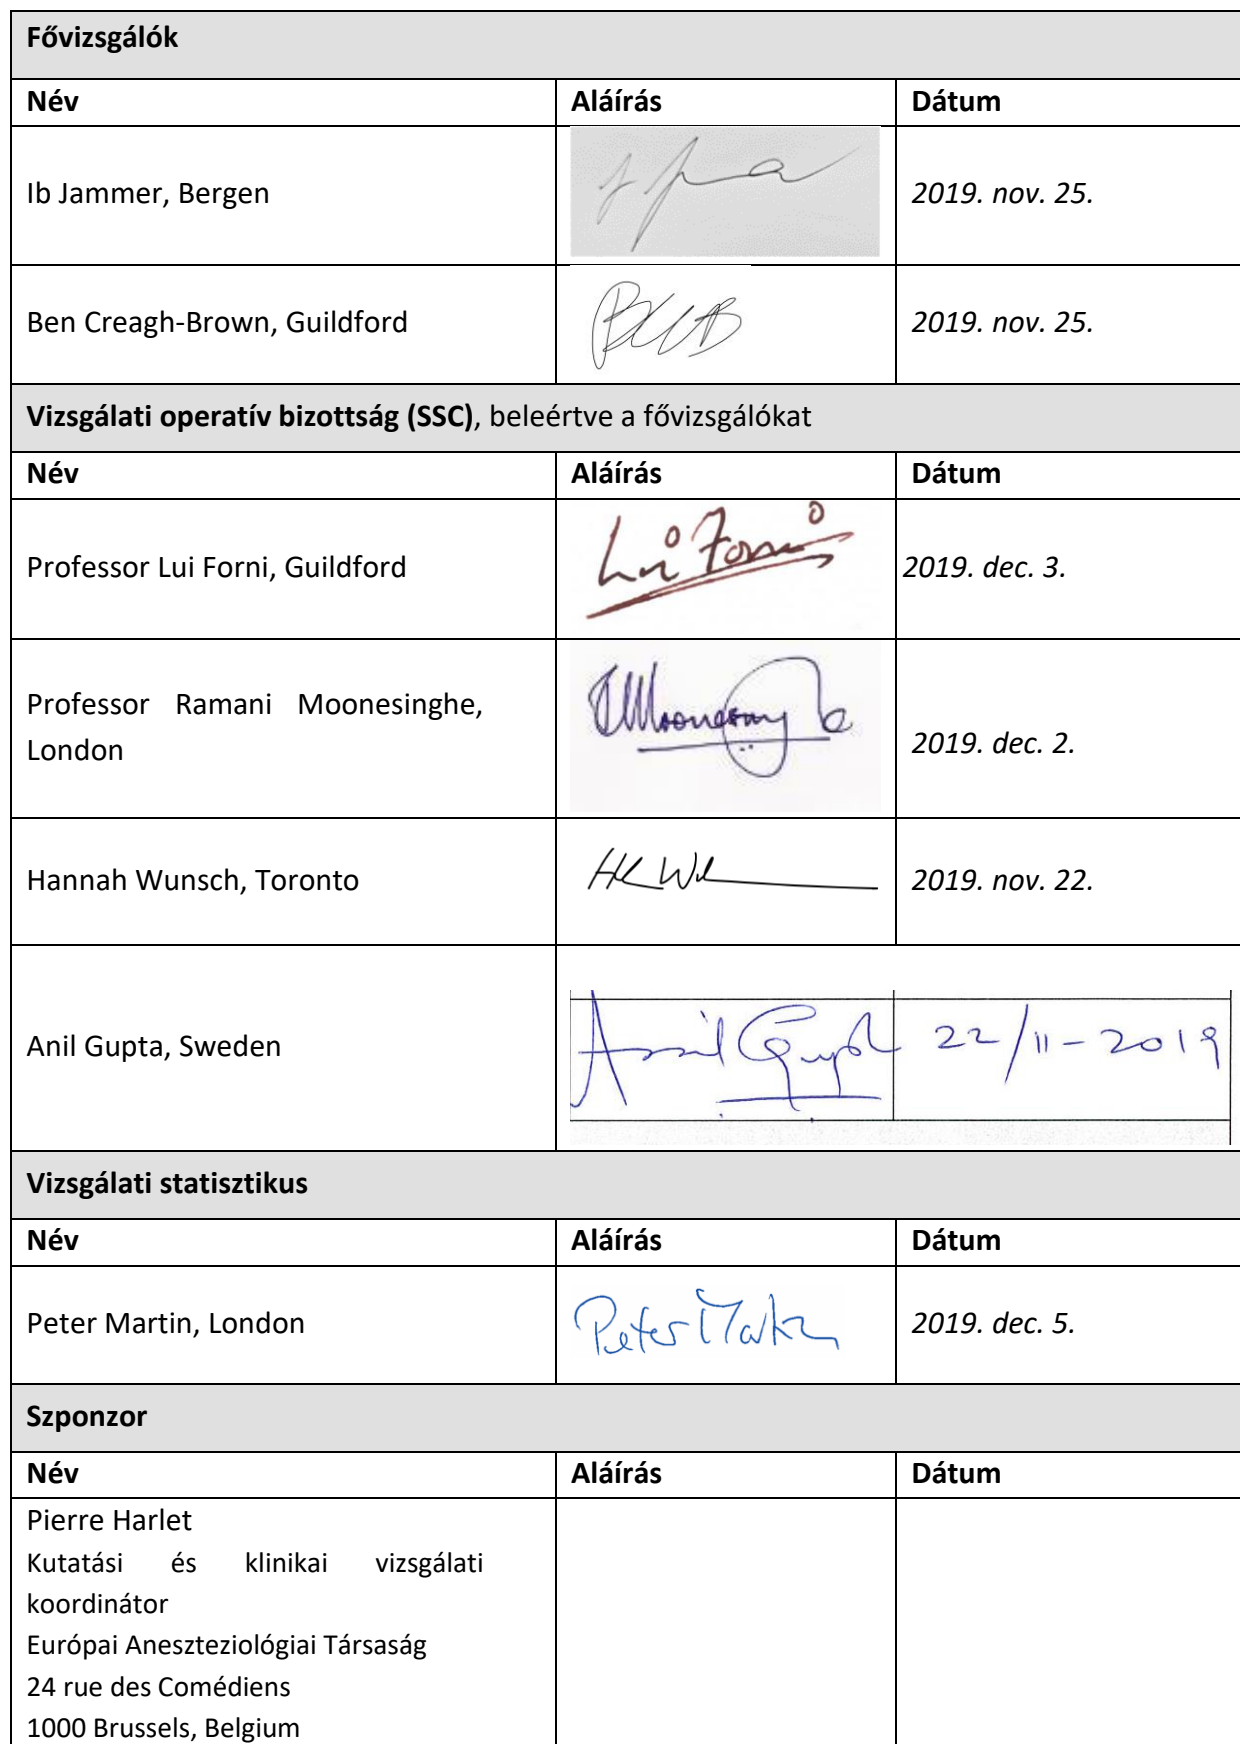 Fővizsgálók
Név Aláírás Dátum
Ib Jammer, Bergen 2019. nov. 25.
Ben Creagh-Brown, Guildford BCCB 2019. nov. 25.
Vizsgálati operatív bizottság (SSC), beleértve a fővizsgálókat
Név Aláírás Dátum
Professor Lui Forni, Guildford Lui Forni 2019. dec. 3.
Professor Ramani Moonesinghe,
London 2019. dec. 2.
Hannah Wunsch, Toronto 2019. nov. 22.
Anil Gupta, Sweden Anil Gupta 22/11-2019
Vizsgálati statisztikus
Név Aláírás Dátum
Peter Martin, London Peter Martin 2019. dec. 5.
Szponzor
Név Aláírás Dátum
Pierre Harlet
Kutatási és klinikai vizsgálati
koordinátor
Európai Aneszteziológiai Társaság
24 rue des Comédiens
1000 Brussels, Belgium